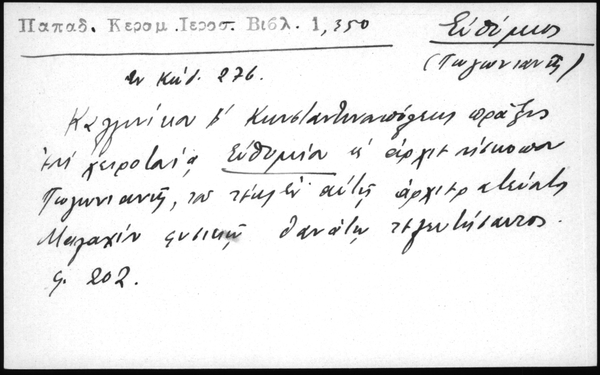 Παπαδ. Κεραμ. Ιεροσ. Βιβλ. 1, 350
Εὐθύμιος
(Πωγωνιανῆς)
ἐν Κώδ. 276.
Καλλινίκου β' Κωνσταντινουπόλεως πρᾶξις
ἐπὶ χειροτονίᾳ Εὐθυμίου εἰς ἀρχιεπίσκοπον
Πωγωνιανῆς, τοῦ πρὶν ἐν αὐτῇ ἀρχιερατεύοντος
Μαλαχίου φυσικῷ θανάτῳ τελευτήσαντος.
φ. 202.